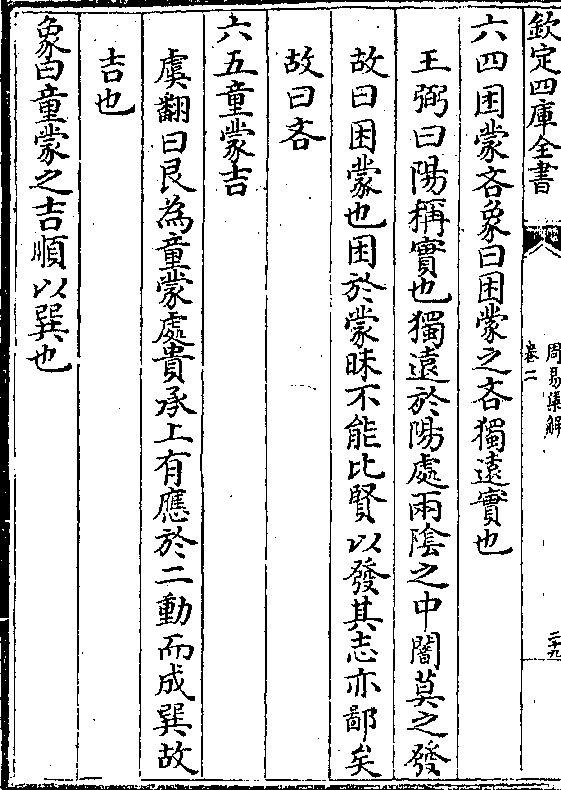 欽定四庫全書
周易集解
卷二
二十九
六四困蒙吝象曰困蒙之吝獨遠實也
王弼曰陽稱實也獨遠於陽處兩陰之中闇莫之發
故曰困蒙也困於蒙昧不能比賢以發其志亦鄙矣
故曰吝
六五童蒙吉
虞翻曰艮為童蒙處貴承上有應於二動而成巽故
吉也
象曰童蒙之吉順以巽也